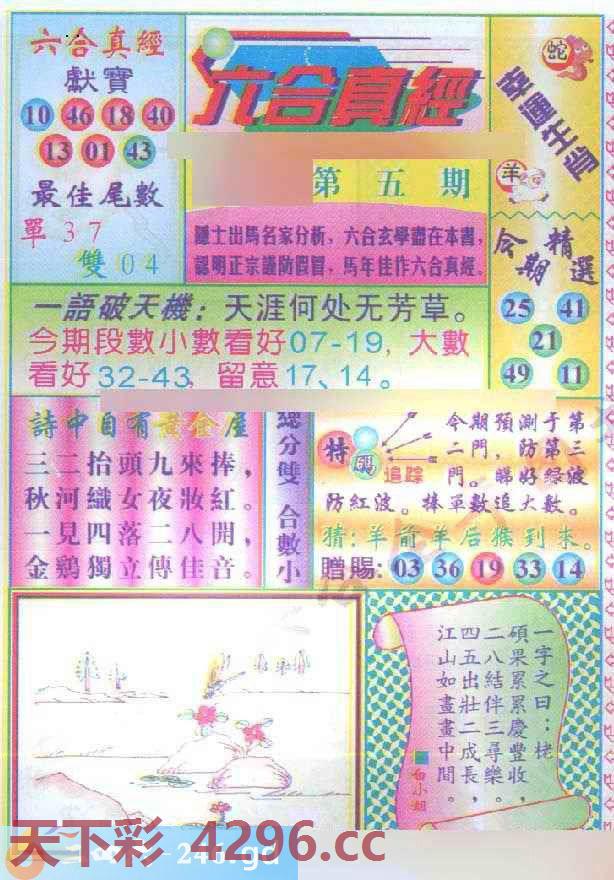 六合真經
獻寶
10 46 18 40
13 01 43
最佳尾數
單 37
雙 04
六合真經
第五期
隱士出馬名家分析,六合玄學盡在本書,
認明正宗謹防假冒,馬年佳作六合真經。
蛇
幸運生肖
羊
今期精選
25 41
21
49 11
一語破天機:天涯何处无芳草。
今期段數小數看好07-19,大數
看好32-43,留意17、14。
詩中自有黃金屋
三二抬頭九來捧,
秋河織女夜妝紅。
一見四落二八開,
金鷄獨立傳佳音。
總分雙 合數小
特碼
追踪
今期預測于第
二門,防第三
門。睇好绿波
防紅波。捧單數追大數。
猜:羊前羊后猴到來。
贈賜:03 36 19 33 14
一字之曰:栳
碩果累累慶豐收,
二八結伴三尋樂。
四五出壯二成長,
江山如畫畫中間。
白小姐
天下彩 4296.cc